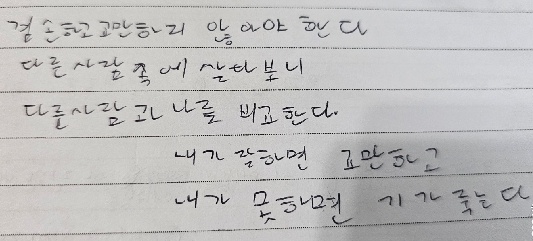 겸손하고 교만하지 않아야 한다
다른사람 속에 살다보니
다른사람과 나를 비교한다.
내가 잘하면 교만하고
내가 못하면 기가 죽는다